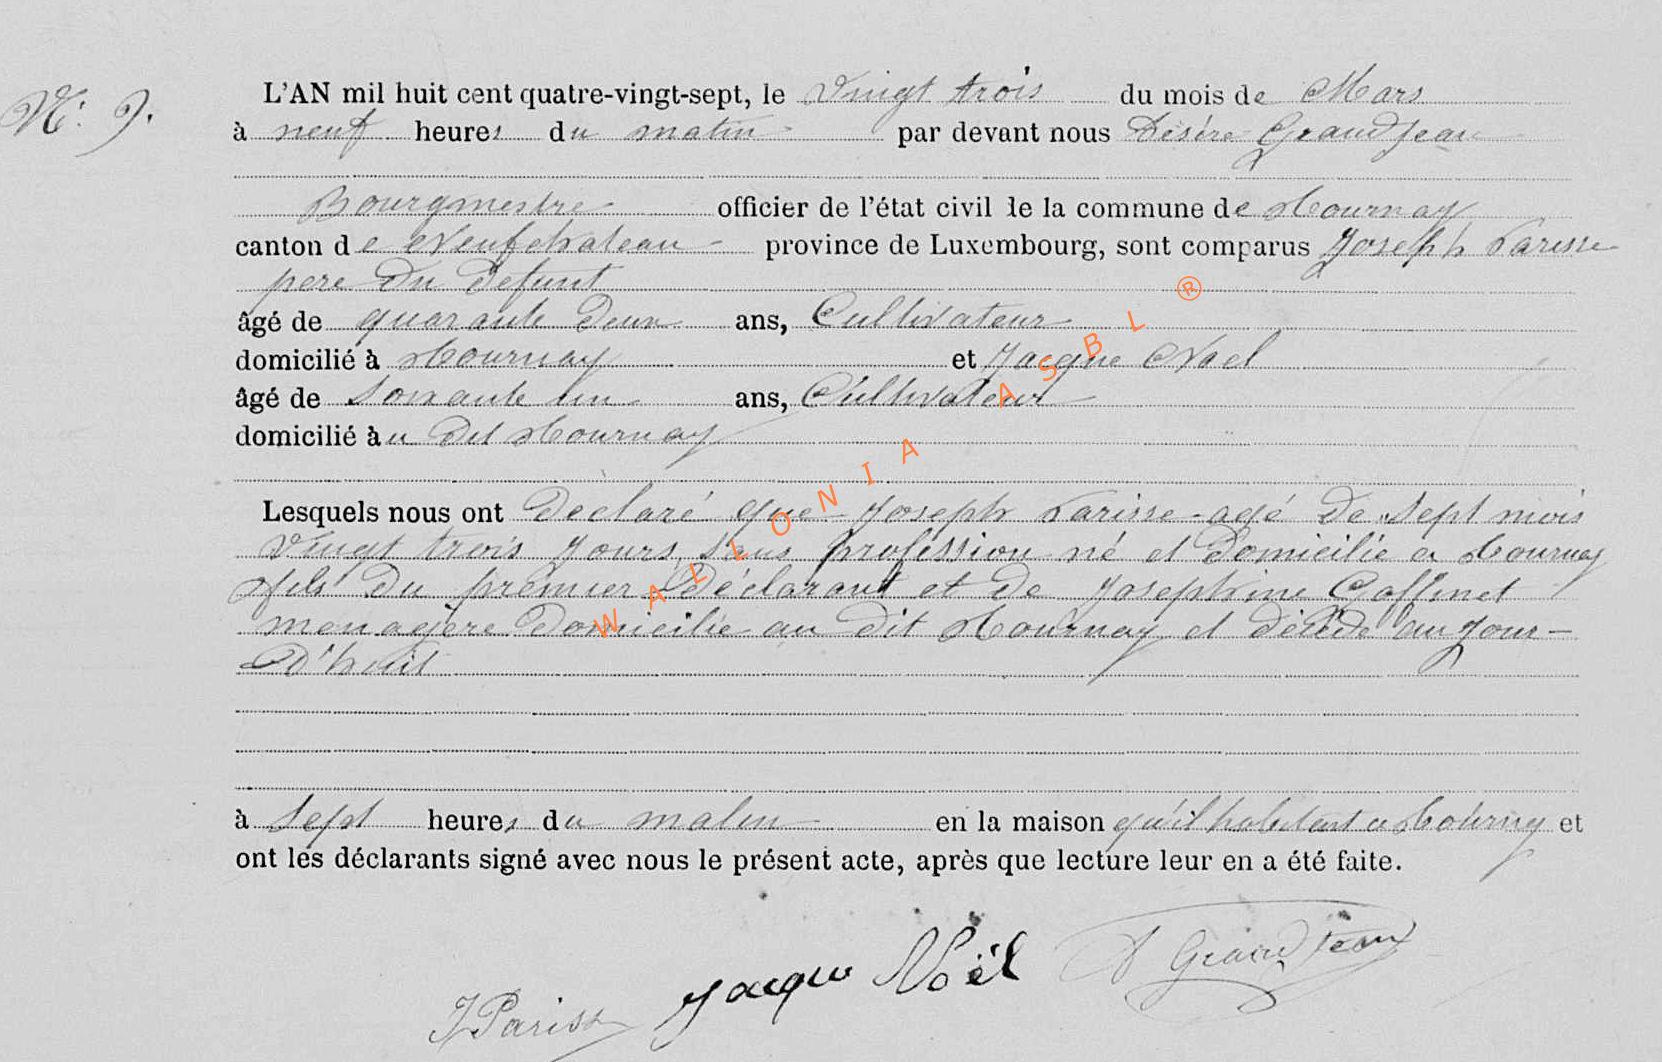 N° 9.
L'AN mil huit cent quatre-vingt-sept, le vingt trois du mois de Mars
à neuf heures du matin par devant nous Désiré Grandjean
Bourgmestre officier de l'état civil de la commune de Tournay
canton de Neufchateau province de Luxembourg, sont comparus Joseph Parisse
pere du defunt
âgé de quarante deux ans, Cultivateur
domicilié à Tournay et Jacque Noel
âgé de Soixante un ans, Cultivateur
domicilié au dit Tournay
Lesquels nous ont déclaré que Joseph Parisse agé de sept mois
vingt trois jours, sans profession né et domicilié a Tournay
fils du premier déclarant et de Josephine Goffinet
menagère domicilie au dit Tournay et décédé aujour-
d'huit
à sept heures du matin en la maison qu'il habitait a Tournay et
ont les déclarants signé avec nous le présent acte, après que lecture leur en a été faite.
J Parisse Jacque Noël D Grandjean
WALLONIA ASBL ®